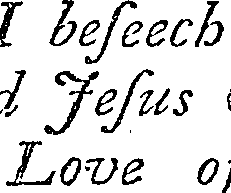 I beſeech
d Jeſus
Love o